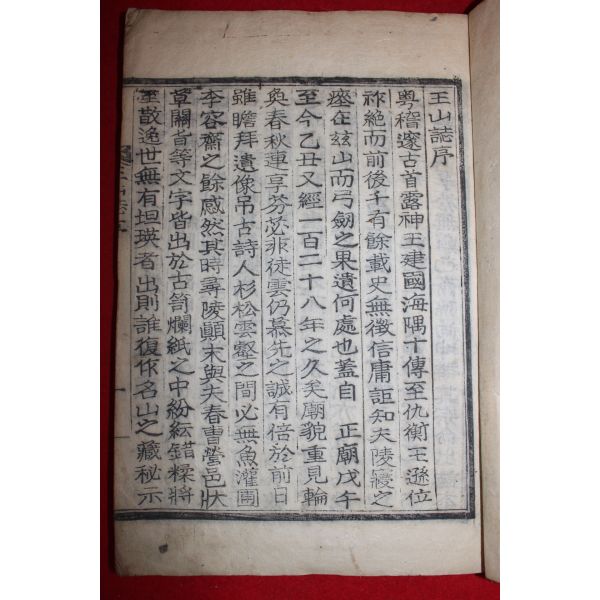 王山誌序
粤稽邃古首露神王建國海隅十傳至仇衡王遜位
祚絶而前後千有餘載史無徵信庸詎知夫陵寢之
在玆山而弓劒之果遺何處也蓋自 正廟戊午
至今乙丑又經一百二十八年之久矣廟貌重見輪
奐春秋連享芬苾非徒雲仍慕先之誠有倍於前日
雖瞻拜遺像吊古詩人杉松雲壑之間必無魚灌圃
李容齋之餘感然其時尋陵顚末與夫春曹營邑狀
草關旨等文字皆出於古笥爛紙之中紛紜錯糅將
至散逸世無有坦瑛者出則誰復作名山之藏秘示